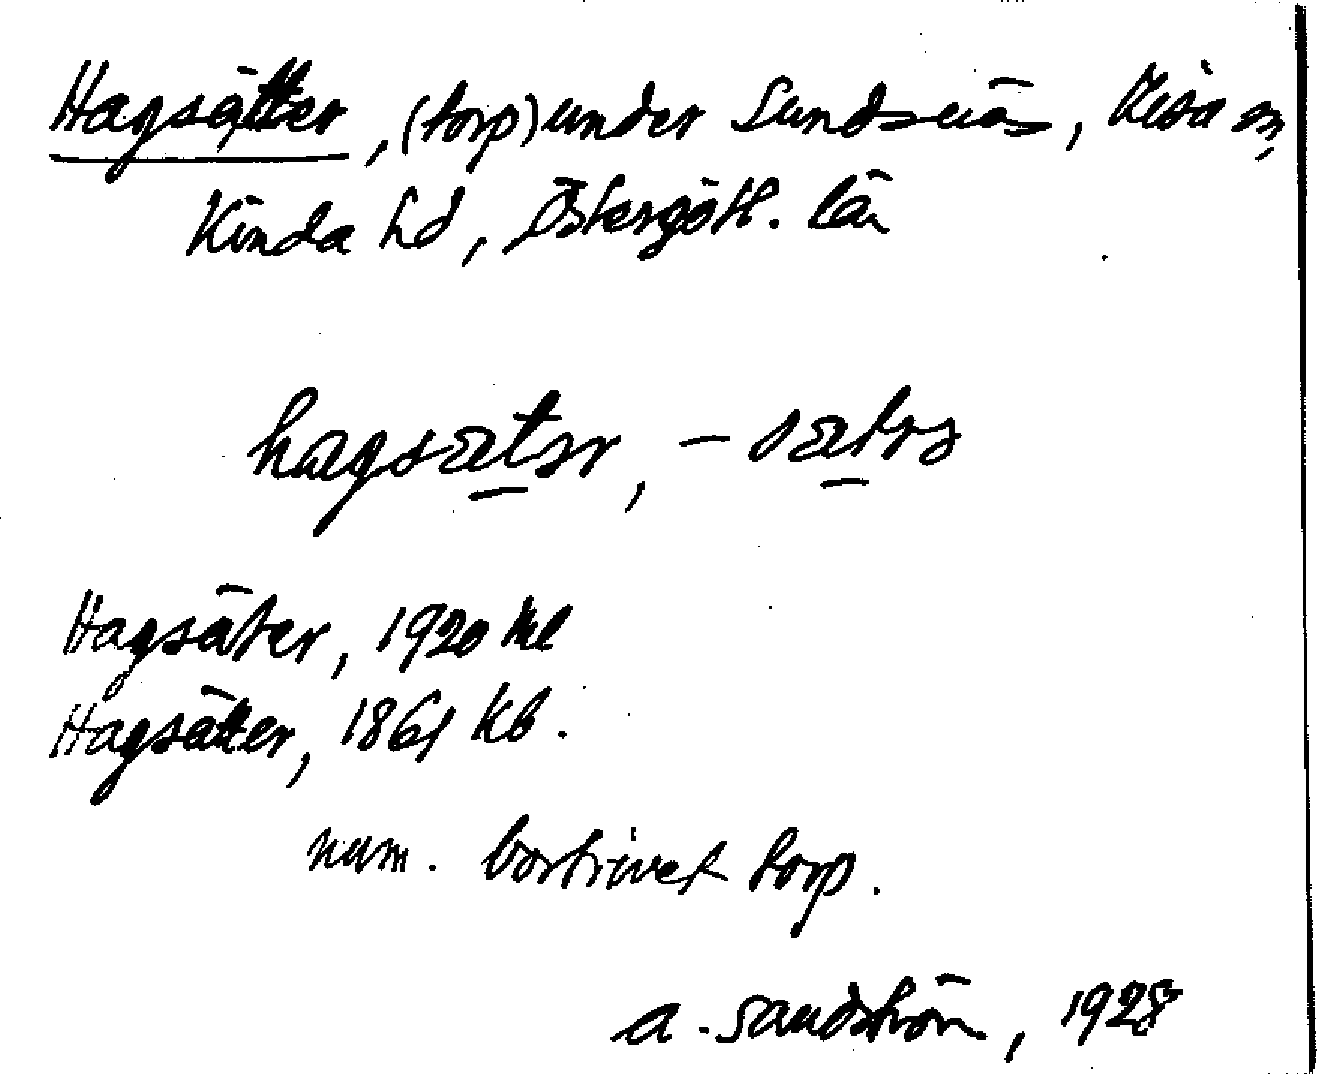 Hagsätter, (torp) under Sundsnäs, Kisa sn,
Kinda hd, Östergötl. län
hagsætər, -sætrs
Hagsäter, 1920 kl
Hagsätter, 1861 Kb.
num. bortrivet torp.
A. Sandström, 1928